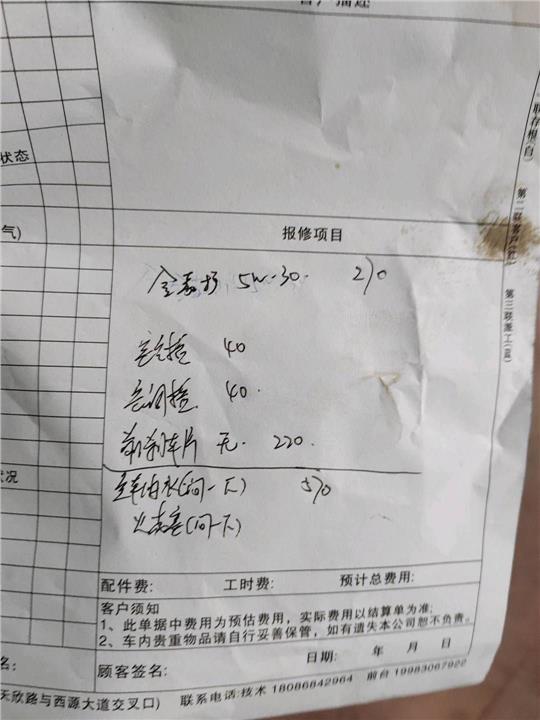 客户描述
一联存根(白)
第二联客户(红)
第三联派工(蓝)
状态
气)
报修项目
全 5W-30. 270
空气格 40
空调格 40.
前刹车片 无. 220.
(问一下) 570
火花塞(问一下)
状况
配件费: 工时费: 预计总费用:
客户须知
1、此单据中费用为预估费用，实际费用以结算单为准;
2、车内贵重物品请自行妥善保管，如有遗失本公司恕不负责。
日期: 年 月 日
名: 顾客签名:
天欣路与西源大道交叉口) 联系电话:技术 18086842964 前台 19983067922